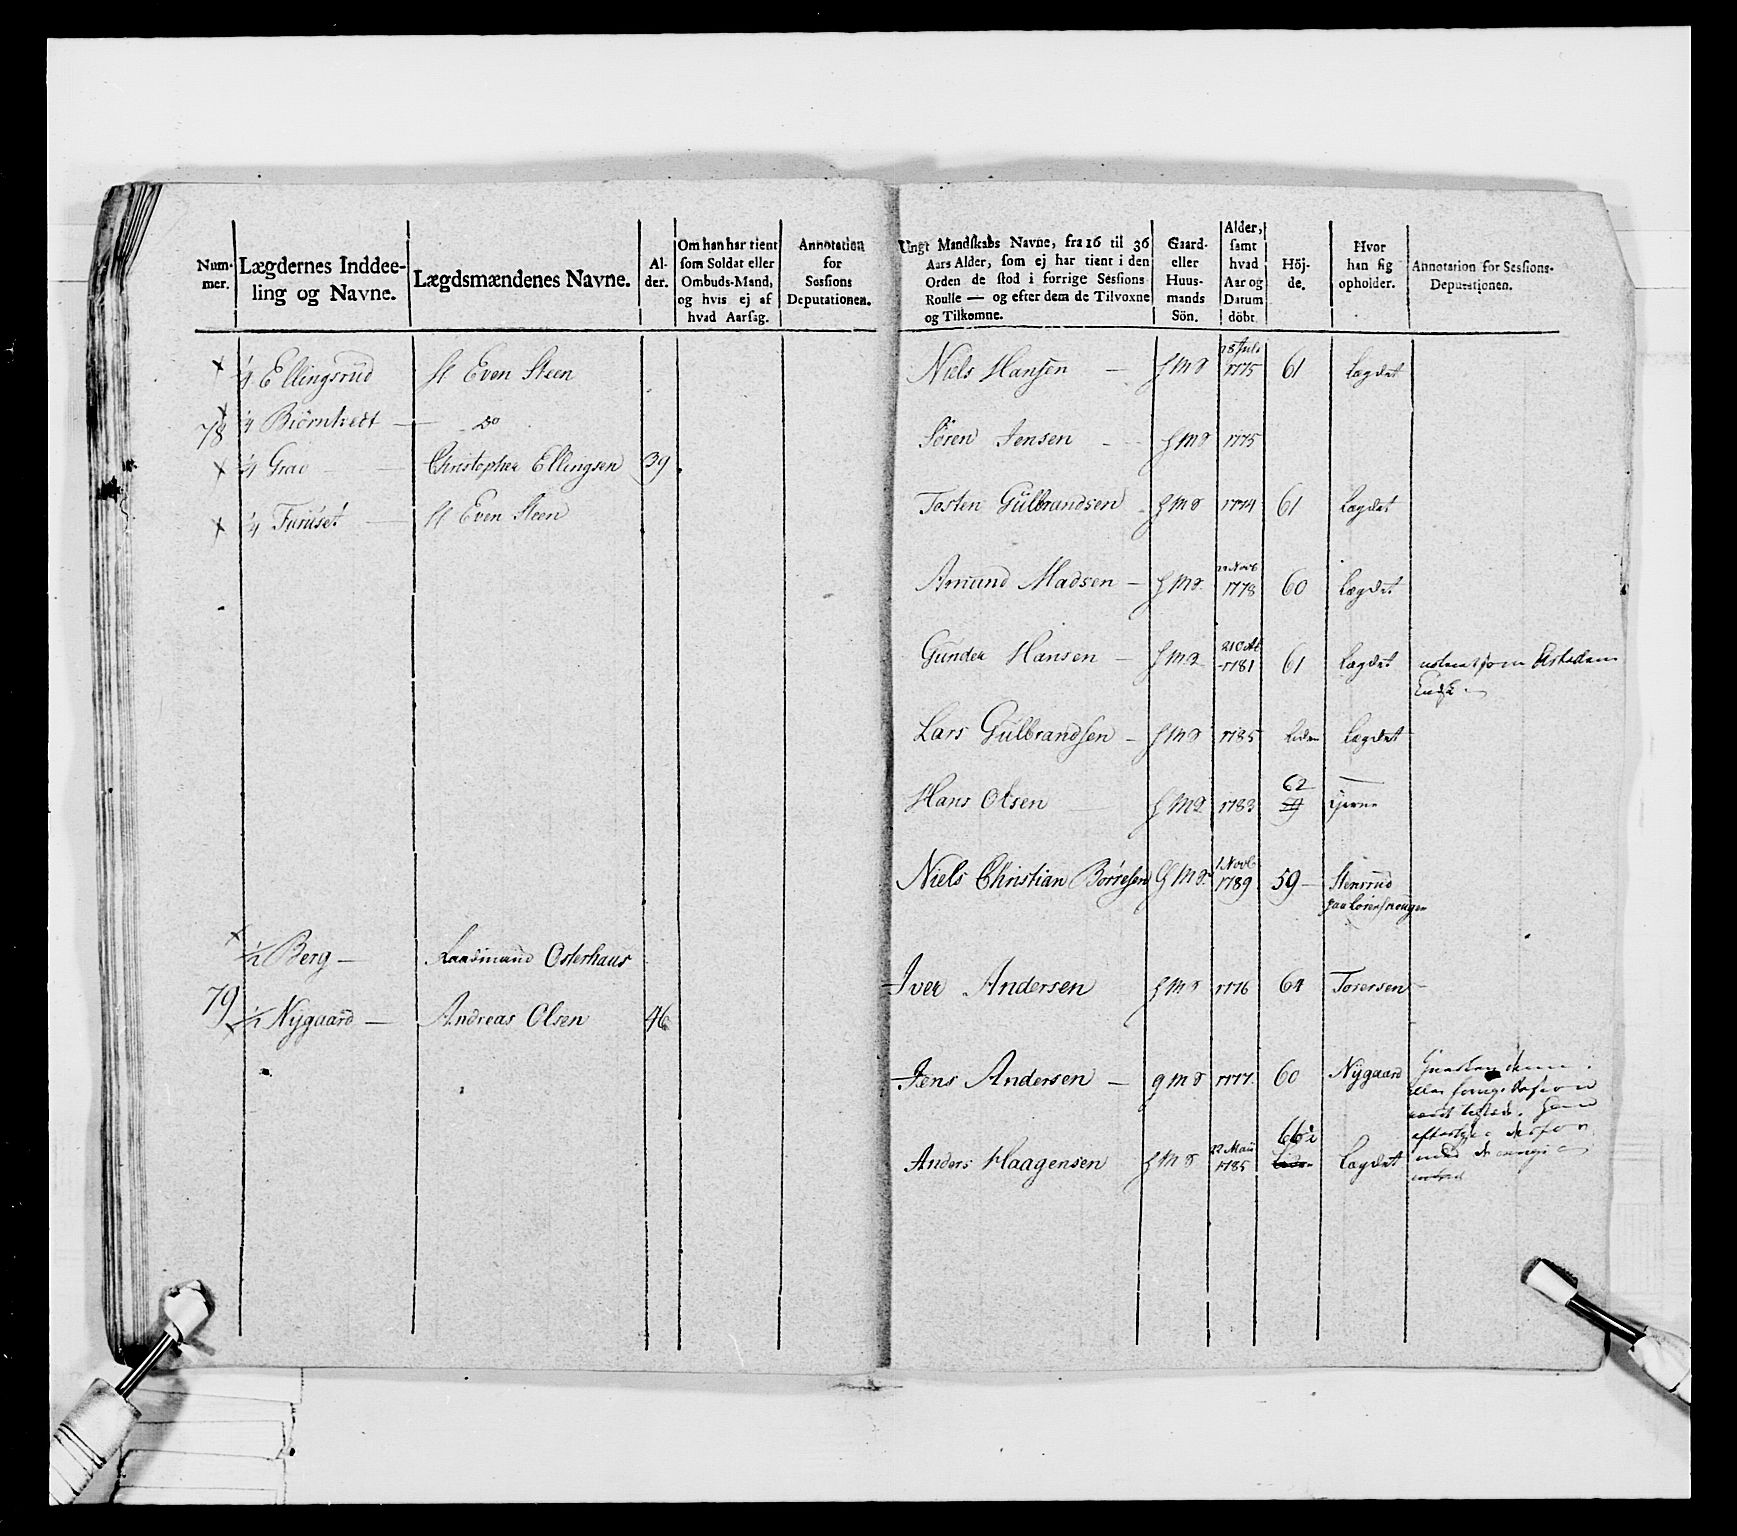 Num-
mer.
Lægdernes Inddee-
ling og Navne.
Lægdsmændenes Navne.
Al-
der.
Om han har tient
som Soldat eller
Ombuds-Mand,
og hvis ej af
hvad Aarsag.
Annotation
for
Sessions
Deputationen.
¼ Ellingsrud H Even Steen
78 ¼ Biörnhedt — do
¼ Grav — Christopher Ellingsen 39
¼ Furuset — H Even Steen
½ Berg — Raadmand Osterhaus
79 ½ Nygaard — Andreas Olsen 46
Ungt Mandskabs Navne, fra 16 til 36
Aars Alder, som ej har tient i den
Orden de stod i forrige Sessions
Roulle — og efter dem de Tilvoxne
og Tilkomne.
Gaard-
eller
Huus-
mands
Sön.
Alder,
samt
hvad
Aar og
Datum
döbt.
Höj-
de.
Hvor
han sig
opholder.
Annotation for Sessions-
Deputationen.
18 Juli
Niels Hansen — H M S 1775 61 Lægdet
Sören Jensen — H M S 1775
Tosten Gulbrandsen H M S 1774 61 Lægdet
Novb
Amund Madsen — H M S 1778 60 Lægdet
21 Octb
Gunder Hansen — H M S 1781 61 Lægdet
Lars Gulbrandsen — H M S 1785 Liden Lægdet
62
Hans Olsen H M S 1783
1 Novb
Niels Christian Börresen G M S 1789 59 — Stensrud
paa Lorenskougen
Iver Andersen H M S 1776 64 Torersen
Jens Andersen — G M S 1777 60 Nygaard
22 Maii
Anders Haagensen H M S 1785 Liden Lægdet